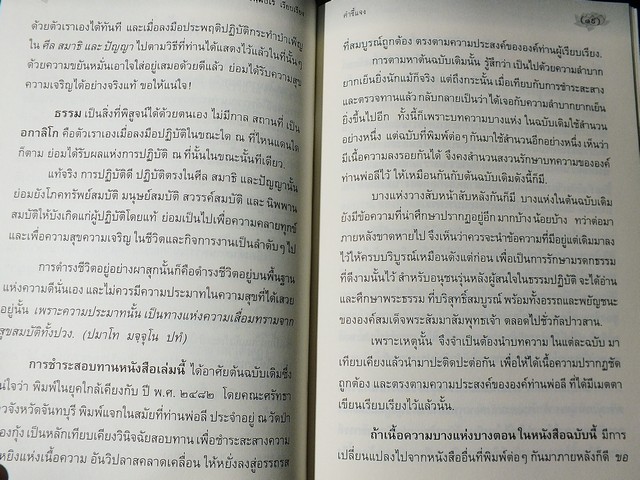 เรียบเรียง
ด้วยตัวเราเองได้ทันที และเมื่อลงมือประพฤติปฏิบัติกระทำบำเพ็ญ
ใน ศีล สมาธิ และ ปัญญา ไปตามวิธีที่ท่านได้แสดงไว้แล้วในที่นั้นๆ
ด้วยความขยันหมั่นเอาใจใส่อยู่เสมอด้วยดีแล้ว ย่อมได้รับความสุข
ความเจริญได้อย่างจริงแท้ ขอให้แน่ใจ!
ธรรม เป็นสิ่งที่พิสูจน์ได้ด้วยตนเอง ไม่มีกาล สถานที่ เป็น
อกาลิโก คือตัวเราเองเมื่อลงมือปฏิบัติในขณะใด ณ ที่ไหนแดนใด
ก็ตาม ย่อมได้รับผลแห่งการปฏิบัติ ณ ที่นั้นในขณะนั้นทีเดียว.
แท้จริง การปฏิบัติดี ปฏิบัติตรงในศีล สมาธิ และปัญญานั้น
ย่อมยังโภคทรัพย์สมบัติ มนุษย์สมบัติ สวรรค์สมบัติ และ นิพพาน
สมบัติให้บังเกิดแก่ผู้ปฏิบัติโดยแท้ ย่อมเป็นไปเพื่อความคลายทุกข์
และเพื่อความสุขความเจริญ ในชีวิตและกิจการงานเป็นลำดับๆ ไป
การดำรงชีวิตอยู่อย่างผาสุกนั้นก็คือดำรงชีวิตอยู่บนพื้นฐาน
แห่งความดีนั่นเอง และไม่ควรมีความประมาทในความสุขที่ได้เสวย
อยู่นั้น เพราะความประมาทนั้น เป็นทางแห่งความเสื่อมทรามจาก
สุขสมบัติทั้งปวง. (ปมาโท มจฺจุโน ปทํ)
การชำระสอบทานหนังสือเล่มนี้ ได้อาศัยต้นฉบับเดิมซึ่ง
แน่ใจว่า พิมพ์ในยุคใกล้เคียงกับ ปี พ.ศ. ๒๔๘๒ โดยคณะศรัทธา
จังหวัดจันทบุรี พิมพ์แจกในสมัยที่ท่านพ่อลี ประจำอยู่ ณ วัดป่า
กุ้ง เป็นหลักเทียบเคียงวินิจฉัยสอบทาน เพื่อชำระสะสางความ
แห่งเนื้อความ อันวิปลาสคลาดเคลื่อน ให้หยั่งลงสู่อรรถรส
คำชี้แจง
ที่สมบูรณ์ถูกต้อง ตรงตามความประสงค์ขององค์ท่านผู้เรียบเรียง.
การตามหาต้นฉบับเดิมนั้น รู้สึกว่า เป็นไปด้วยความลำบาก
ยากเย็นยิ่งนักแม้ก็จริง แต่ถึงกระนั้น เมื่อเทียบกับการชำระสะสาง
และตรวจทานแล้ว กลับกลายเป็นว่าได้เจอกับความลำบากยากเย็น
ยิ่งขึ้นไปอีก ทั้งนี้ก็เพราะบทความบางแห่ง ในฉบับเดิมใช้สำนวน
อย่างหนึ่ง แต่ฉบับที่พิมพ์ต่อๆ กันมาใช้สำนวนอีกอย่างหนึ่ง เห็นว่า
มีเนื้อความลงรอยกันได้ จึงคงสำนวนสงวนรักษาบทความขององค์
ท่านพ่อลีไว้ ให้เหมือนกันกับต้นฉบับเดิมดังนี้ก็มี.
บางแห่งวางสับหน้าสับหลังกันก็มี บางแห่งในต้นฉบับเดิม
ยังมีข้อความที่น่าศึกษาปรากฏอยู่อีก มากบ้างน้อยบ้าง ทว่าต่อมา
ภายหลังขาดหายไป จึงเห็นว่าควรจะนำข้อความที่มีอยู่แต่เดิมมาลง
ไว้ให้ครบบริบูรณ์เหมือนดังแต่ก่อน เพื่อเป็นการรักษามรดกธรรม
ที่ดีงามนั้นไว้ สำหรับอนุชนรุ่นหลังผู้สนใจในธรรมปฏิบัติ จะได้อ่าน
และศึกษาพระธรรม ที่บริสุทธิ์สมบูรณ์ พร้อมทั้งอรรถและพยัญชนะ
ขององค์สมเด็จพระสัมมาสัมพุทธเจ้า ตลอดไปชั่วกัลปาวสาน.
เพราะเหตุนั้น จึงจำเป็นต้องนำบทความ ในแต่ละฉบับ มา
เทียบเคียงแล้วนำมาปะติดปะต่อกัน เพื่อให้ได้เนื้อความปรากฏชัด
ถูกต้อง และตรงตามความประสงค์ขององค์ท่านพ่อลี ที่ได้มีเมตตา
เขียนเรียบเรียงไว้แล้วนั้น.
ถ้าเนื้อความบางแห่งบางตอน ในหนังสือฉบับนี้ มีการ
เปลี่ยนแปลงไปจากหนังสืออื่นที่พิมพ์ต่อๆ กันมาภายหลังก็ดี ขอ